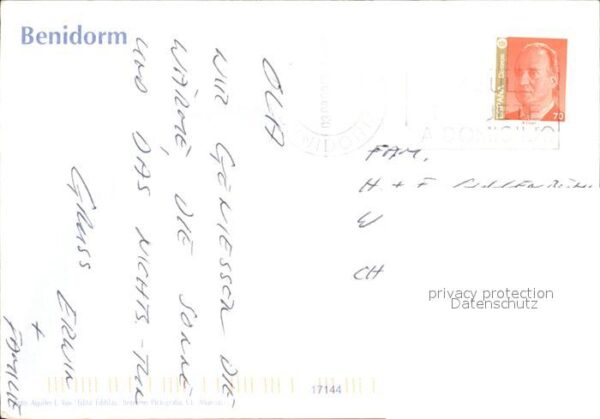 Benidorm
OLA
WIR GENIESSEN DIE
WÄRME, DIE SONNE
UND DAS NICHTS-TUN
GRUSS ERWIN
+
FAMILIE
ESPAÑA
70
A DOMICILIO
BENIDORM
FAM.
H + F
W
CH
privacy protection
Datenschutz
17144